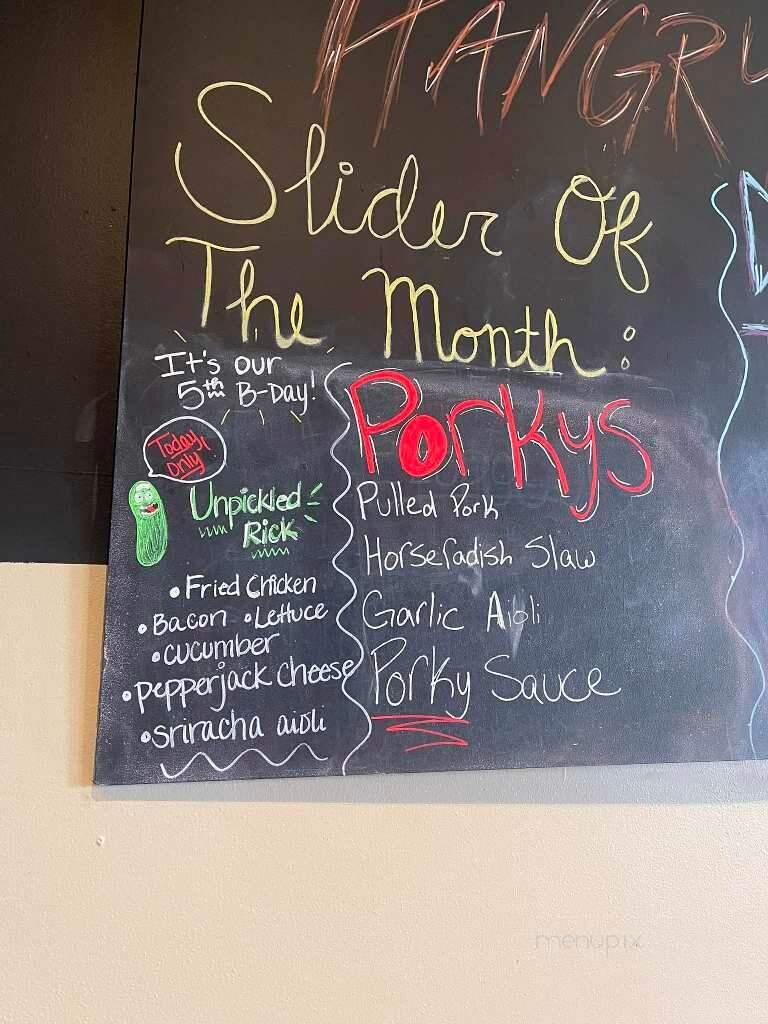 HANGR
Slider Of
The Month:
It's our
5th B-Day!
Today
Only!
Unpickled
Rick
• Fried Chicken
• Bacon • Lettuce
• cucumber
• pepperjack cheese
• sriracha aioli
Porkys
Pulled Pork
Horseradish Slaw
Garlic Aioli
Porky Sauce
menupix